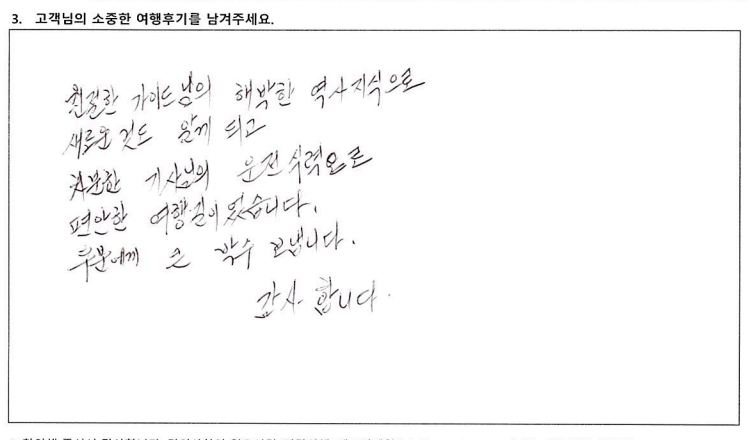 3. 고객님의 소중한 여행후기를 남겨주세요.
친절한 가이드님의 해박한 역사지식으로
새로운것도 알게 되고
차분한 기사님의 운전 실력으로
편안한 여행길이었습니다.
두분에게 큰 박수 보냅니다.
감사 합니다.